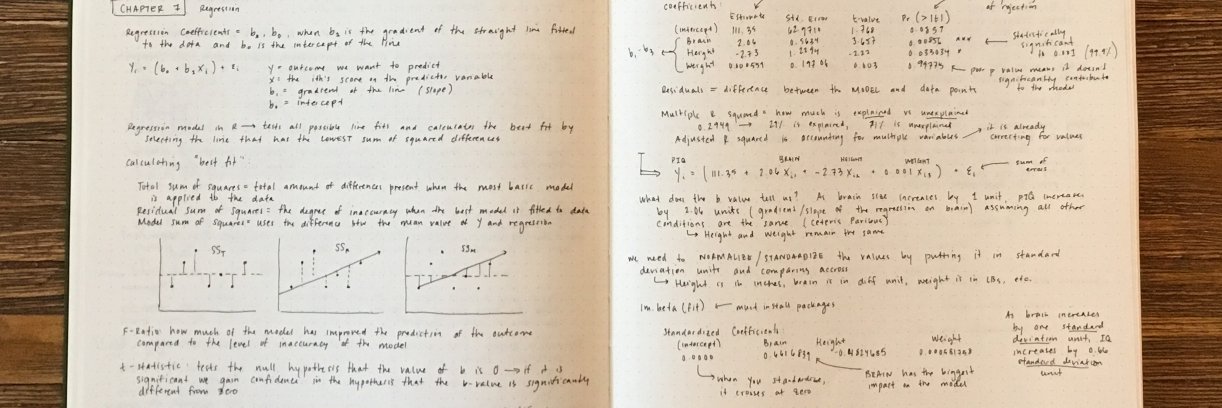 CHAPTER 7 Regression
Regression Coefficients = b₁, b₀, when b₁ is the gradient of the straight line fitted
to the data and b₀ is the intercept of the line
Yᵢ = (b₀ + b₁Xᵢ) + εᵢ
y = outcome we want to predict
x = the ith's score on the predictor variable
b₁ = gradient of the line (slope)
b₀ = intercept
Regression model in R → tests all possible line fits and calculates the best fit by
selecting the line that has the LOWEST sum of squared differences
Calculating "best fit":
Total sum of squares = total amount of differences present when the most basic model
is applied to the data
Residual sum of squares = the degree of inaccuracy when the best model is fitted to data
Model sum of squares = uses the difference btw the mean value of Y and regression
SS_T SS_R SS_M
F-Ratio: how much of the model has improved the prediction of the outcome
compared to the level of inaccuracy of the model
t-statistic: tests the null hypothesis that the value of b is 0 → if it is
significant we gain confidence in the hypothesis that the b-value is significantly
different from zero
coefficients: of rejection
Estimate Std. Error t-value Pr(>|t|)
(intercept) 111.35 62.9710 1.768
b₁-b₃
Brain 2.06 0.5634 3.657 0.00856 ***
Height -2.73 1.2294 -2.22 0.033034 *
Weight 0.000559 0.19706 0.003 0.99775
← Statistically
significant
to 0.001 (99.9%)
← poor p value means it doesn't
significantly contribute
to the model
Residuals = difference between the MODEL and data points
Multiple R squared = how much is explained vs unexplained
0.2949 → 29% is explained, 71% is unexplained
Adjusted R squared is accounting for multiple variables → it is already
correcting for values
PIQ BRAIN HEIGHT WEIGHT
Yᵢ = (111.35 + 2.06 Xᵢ₁ + -2.73 Xᵢ₂ + 0.001 Xᵢ₃) + εᵢ ← sum of
errors
What does the b value tell us? As brain size increases by 1 unit, PIQ increases
by 2.06 units (gradient/slope of the regression on brain) assuming all other
conditions are the same (ceteris Paribus)
↳ Height and weight remain the same
We need to NORMALIZE/STANDARDIZE the values by putting it in standard
deviation units and comparing accross
↳ Height is in inches, brain is in diff unit, weight is in LBs, etc.
lm.beta(fit) ← must install packages
Standardized Coefficients:
(intercept) Brain Height Weight
0.0000
↳ when you standardize,
it crosses at zero
BRAIN has the biggest
impact on the model
As brain increases
by one standard
deviation unit, IQ
increases by 0.66
standard deviation
unit